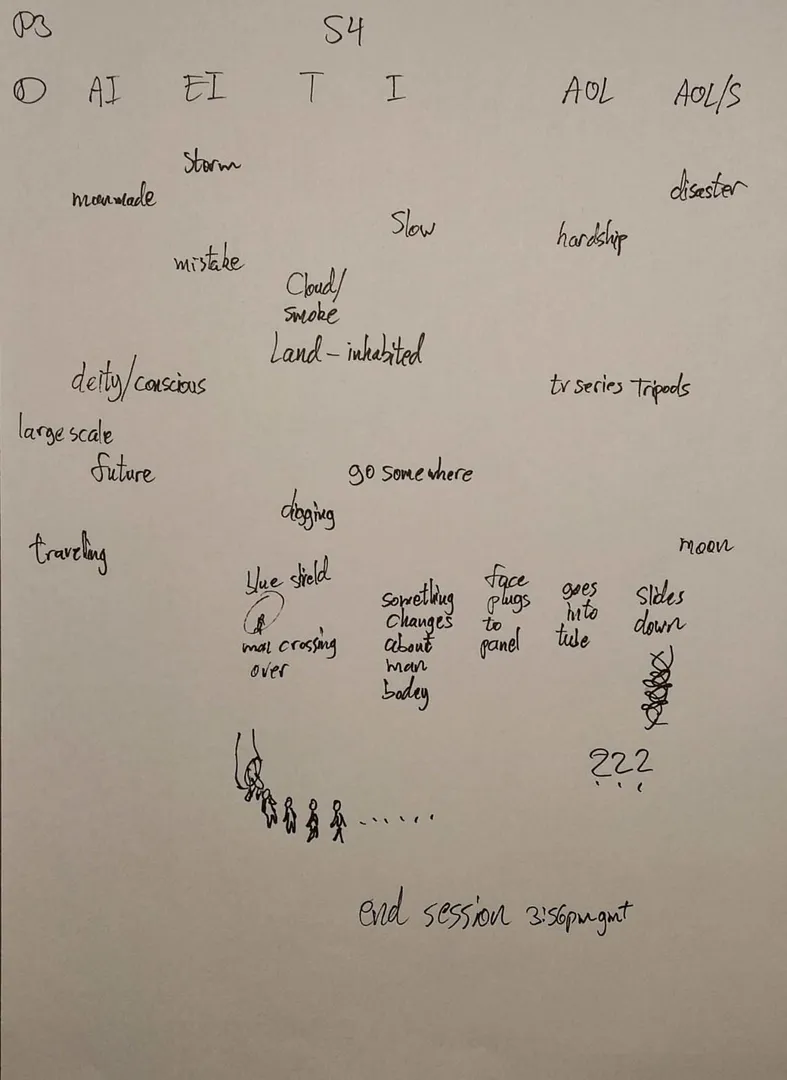 P3 S4
D AI EI T I AOL AOL/S
Storm
manmade
disaster
Slow
hardship
mistake
Cloud/
smoke
Land - inhabited
deity/conscious
tv series Tripods
large scale
future
go somewhere
digging
traveling
moon
blue shield
man crossing
over
something
changes
about
man
bodey
face
plugs
to
panel
goes
into
tube
slides
down
???
end session 3:56pmgmt